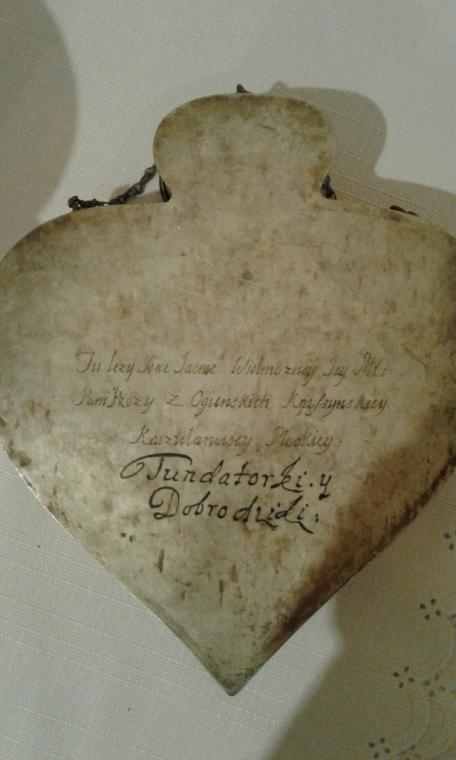 Tu leży Serce Jaśnie Wielmożney Jey Mći
Pani Rozy z Oginskich Kraszynskiey
Kasztelanowey Płockiey:
Fundatorki. y
Dobrodziki: